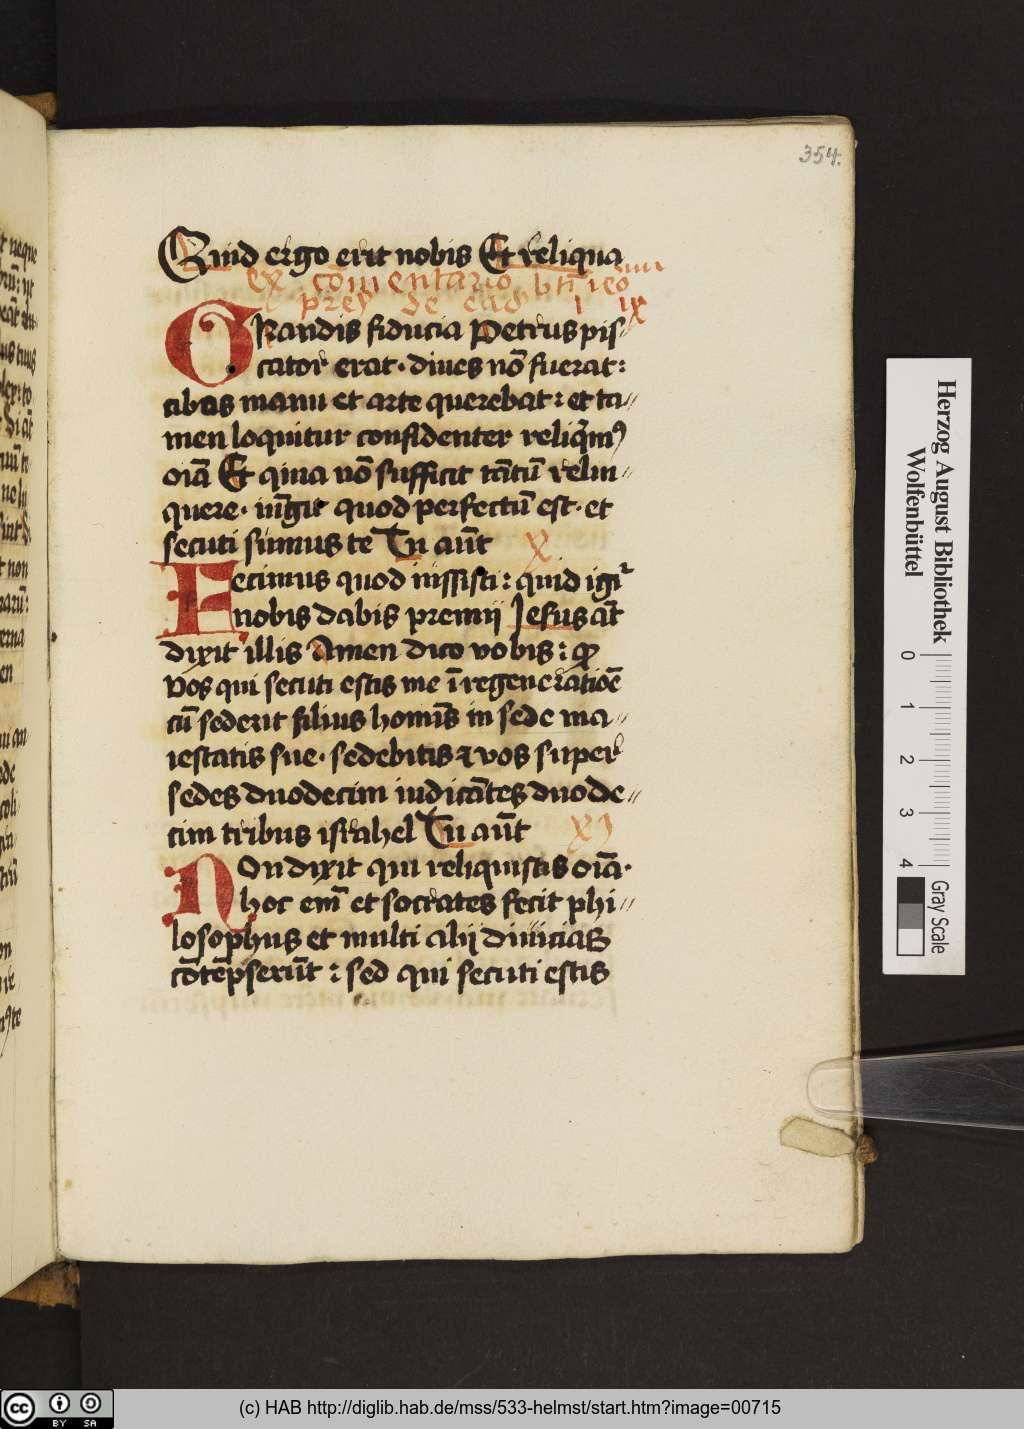 354.
Quid ergo erit nobis Et reliqua
ex cōmentario bti ieronimi
prēs de eadē l ix
GRandis fiducia Petrus pis⸗
cator erat · diues nō fuerat :
cibos manu et arte querebat : et ta⸗
men loquitur confidenter reliqͥmꝰ
oīa Et quia nō sufficit tātū relin⸗
quere · iūgit quod perfectū est · et
secuti sumus te Tu aūt x
Fecimus quod iussisti : quid igiͬ
nobis dabis premij Jesus aūt
dixit illis Amen dico vobis : ꝙ
vos qui secuti estis me ī regeneratiōe
cū sederit filius homīs in sede ma⸗
iestatis sue · sedebitis ⁊ vos super
sedes duodecim iudicātes duode⸗
cim tribus israhel Tu aūt xj
NOn dixit qui reliquistis oīa ·
hoc em̄ et socrates fecit phi⸗
losophus et multi alij diuicias
cōtēpserūt : sed qui secuti estis
Herzog August Bibliothek
Wolfenbüttel
0 1 2 3 4
Gray Scale
cc BY SA
(c) HAB http://diglib.hab.de/mss/533-helmst/start.htm?image=00715